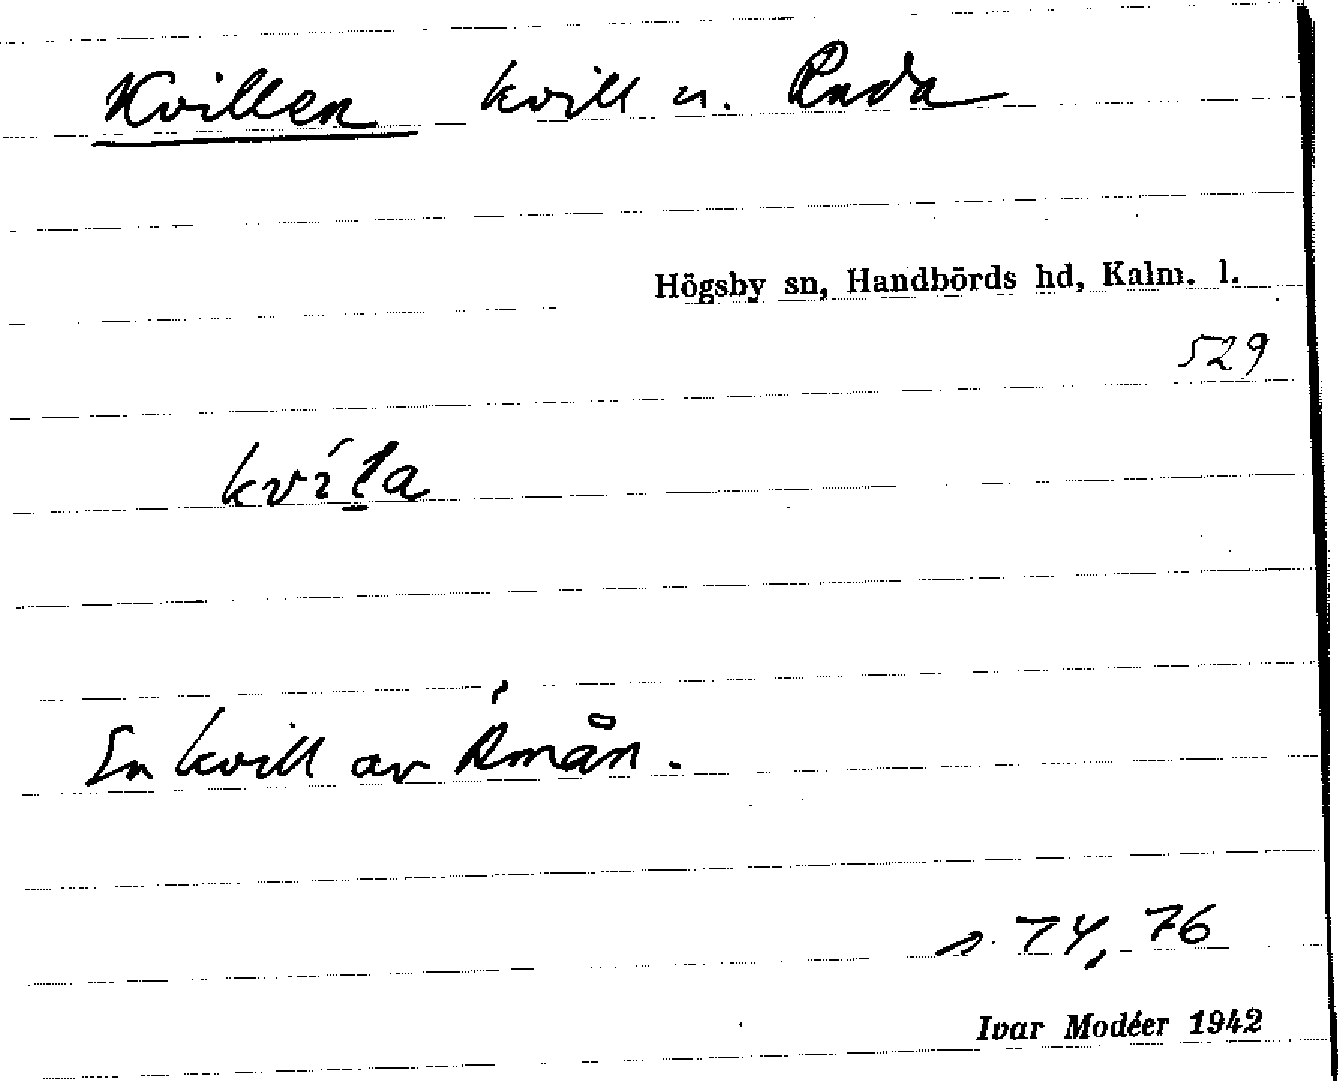 Kvillen kvill n. Ruda
Högsby sn, Handbörds hd, Kalm. l.
529
kvíl̲a
En kvill av Emån.
s. 74, 76
Ivar Modéer 1942